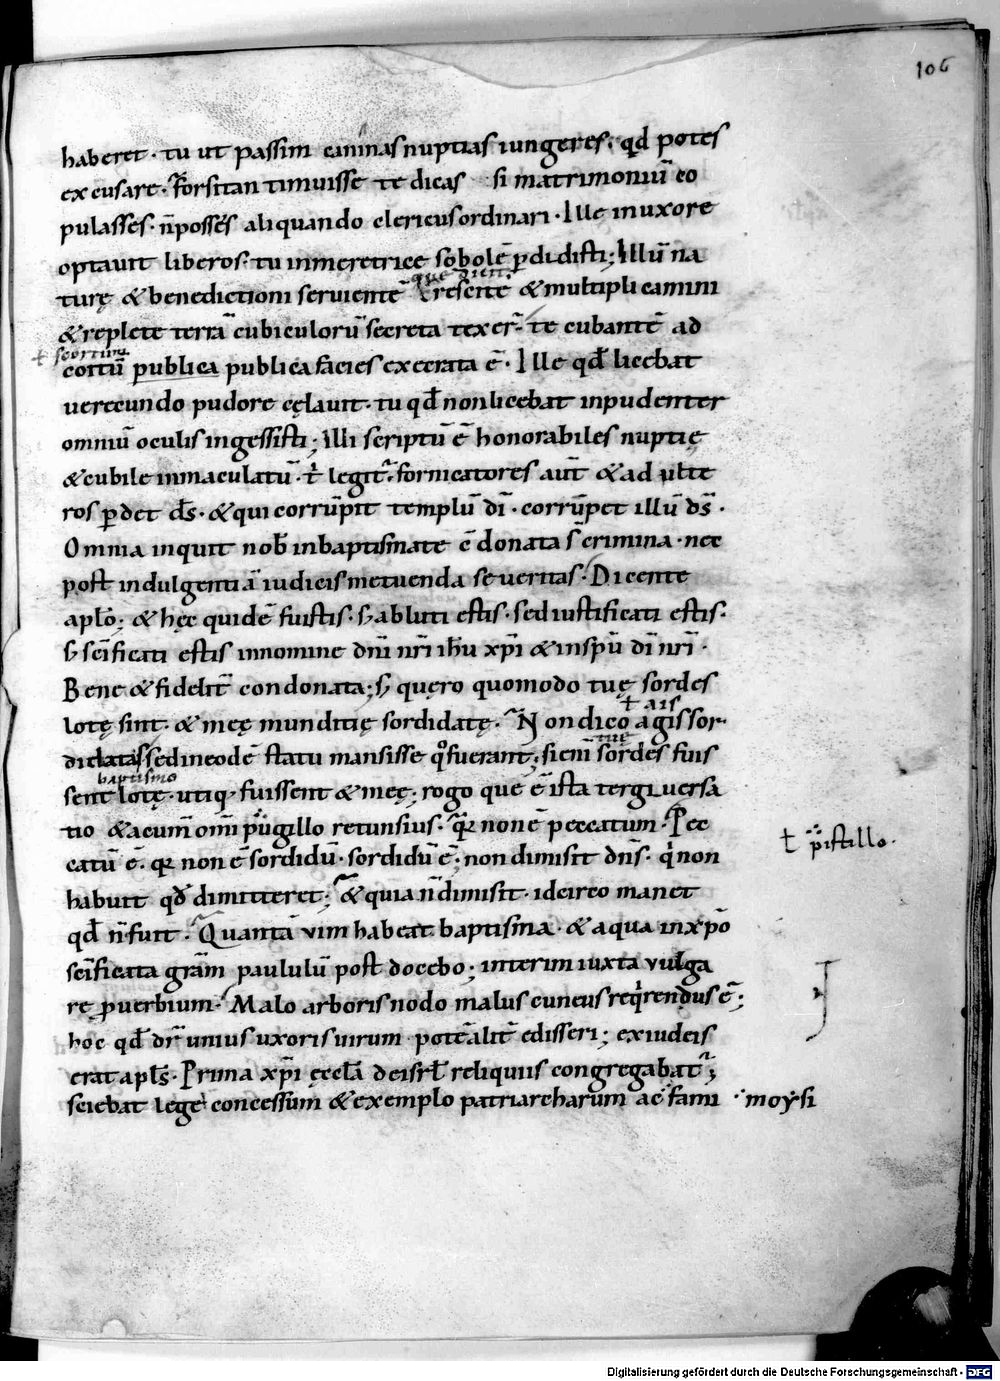 106
haberet · tu ut passim caninas nuptias iungeres · qd potes
excusare · forsitan timuisse te dicas si matrimoniū co
pulasses · n̄ posses aliquando clericus ordinari · Ille in uxore
optauit liberos · tu in meretrice sobolē ꝑdidisti ; Illū na
turę & benedictioni seruientē cresente & multiplicamini
& replete terrā cubiculorū secreta texer̄ · te cubantē ad
ɫ scortum
coitū publica publica facies execrata ē · Ille qđ licebat
uerecundo pudore cęlauit · tu qđ non licebat inpudenter
omniū oculis ingessisti ; Illi scriptū ē honorabiles nuptię
& cubile inmaculatū · t̄ legit̄ · fornicatores aut̄ & adulte
ros ꝑdet d̄s · & qui corrūpit templū dī · corrūpet illū d̄s ·
Omnia inquit nob̄ in baptismate ē donata s̄ crimina · nec
post indulgentiā iudicis metuenda seueritas · Dicente
apl̄o ; & hęc quidē fuistis · s; abluti estis · sed iustificati estis ·
s; sc̄ificati estis in nomine dn̄i nr̄i ih̄u xp̄i & in sp̄u dī nr̄i ·
Bene & fidelit̄ condonata ; s; quęro quomodo tuę sordes
lotę sint · & meę munditię sordidatę · Non dico
ɫ ais
agis sor
didatas sed in eodē statu mansisse qo fuerant ; si eni
tuę
sordes fuis
baptismo
sent lotę · utiq · fuissent & meę ; rogo que ē ista tergiuersa
tio & acum om̄i pugillo retunsius · qr non ē peccatum · Pec
ɫ pistillo ·
catū ē · qr non ē sordidū · sordidū ē · non dimisit dn̄s · qi non
habuit qđ dimitteret ; & quia n̄ dimisit · idcirco manet
qđ n̄ fuit · Quantā vim habeat baptisma · & aqua in xp̄o
sc̄ificata grām paululū post docebo ; interim iuxta vulga
re ꝓuerbium · Malo arboris nodo malus cuneus reqirendus ē ;
hoc qđ dr̄ unius uxoris uirum potē alit̄ edisseri ; ex iudeis
erat apl̄s · Prima xp̄i ęcclā de isrl̄ reliquiis congregabat̄ ;
sciebat lege concessum & exemplo patriarcharum ac fami · moysi